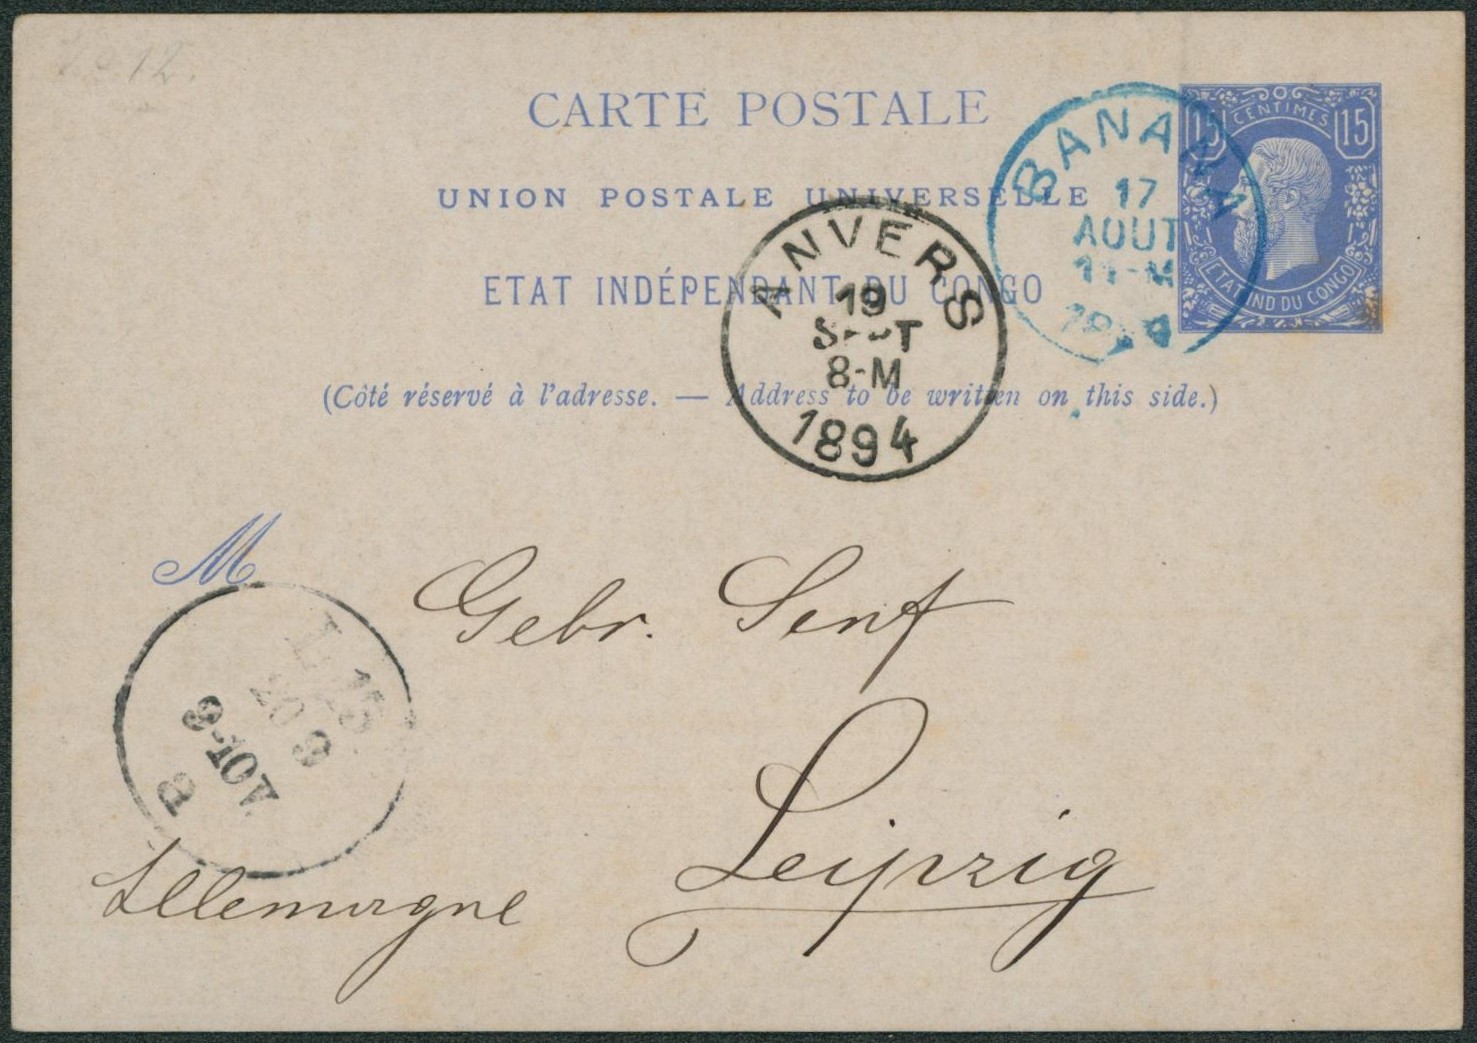 CARTE POSTALE
UNION POSTALE UNIVERSELLE
ETAT INDÉPENDANT DU CONGO
(Côté réservé à l'adresse. — Address to be written on this side.)
15 CENTIMES 15
ETAT IND DU CONGO
BANANA
17
AOUT
11-M
ANVERS
19
SEPT
8-M
1894
M
Gebr. Senf
Leipzig
Allemagne
20 9
9-10V